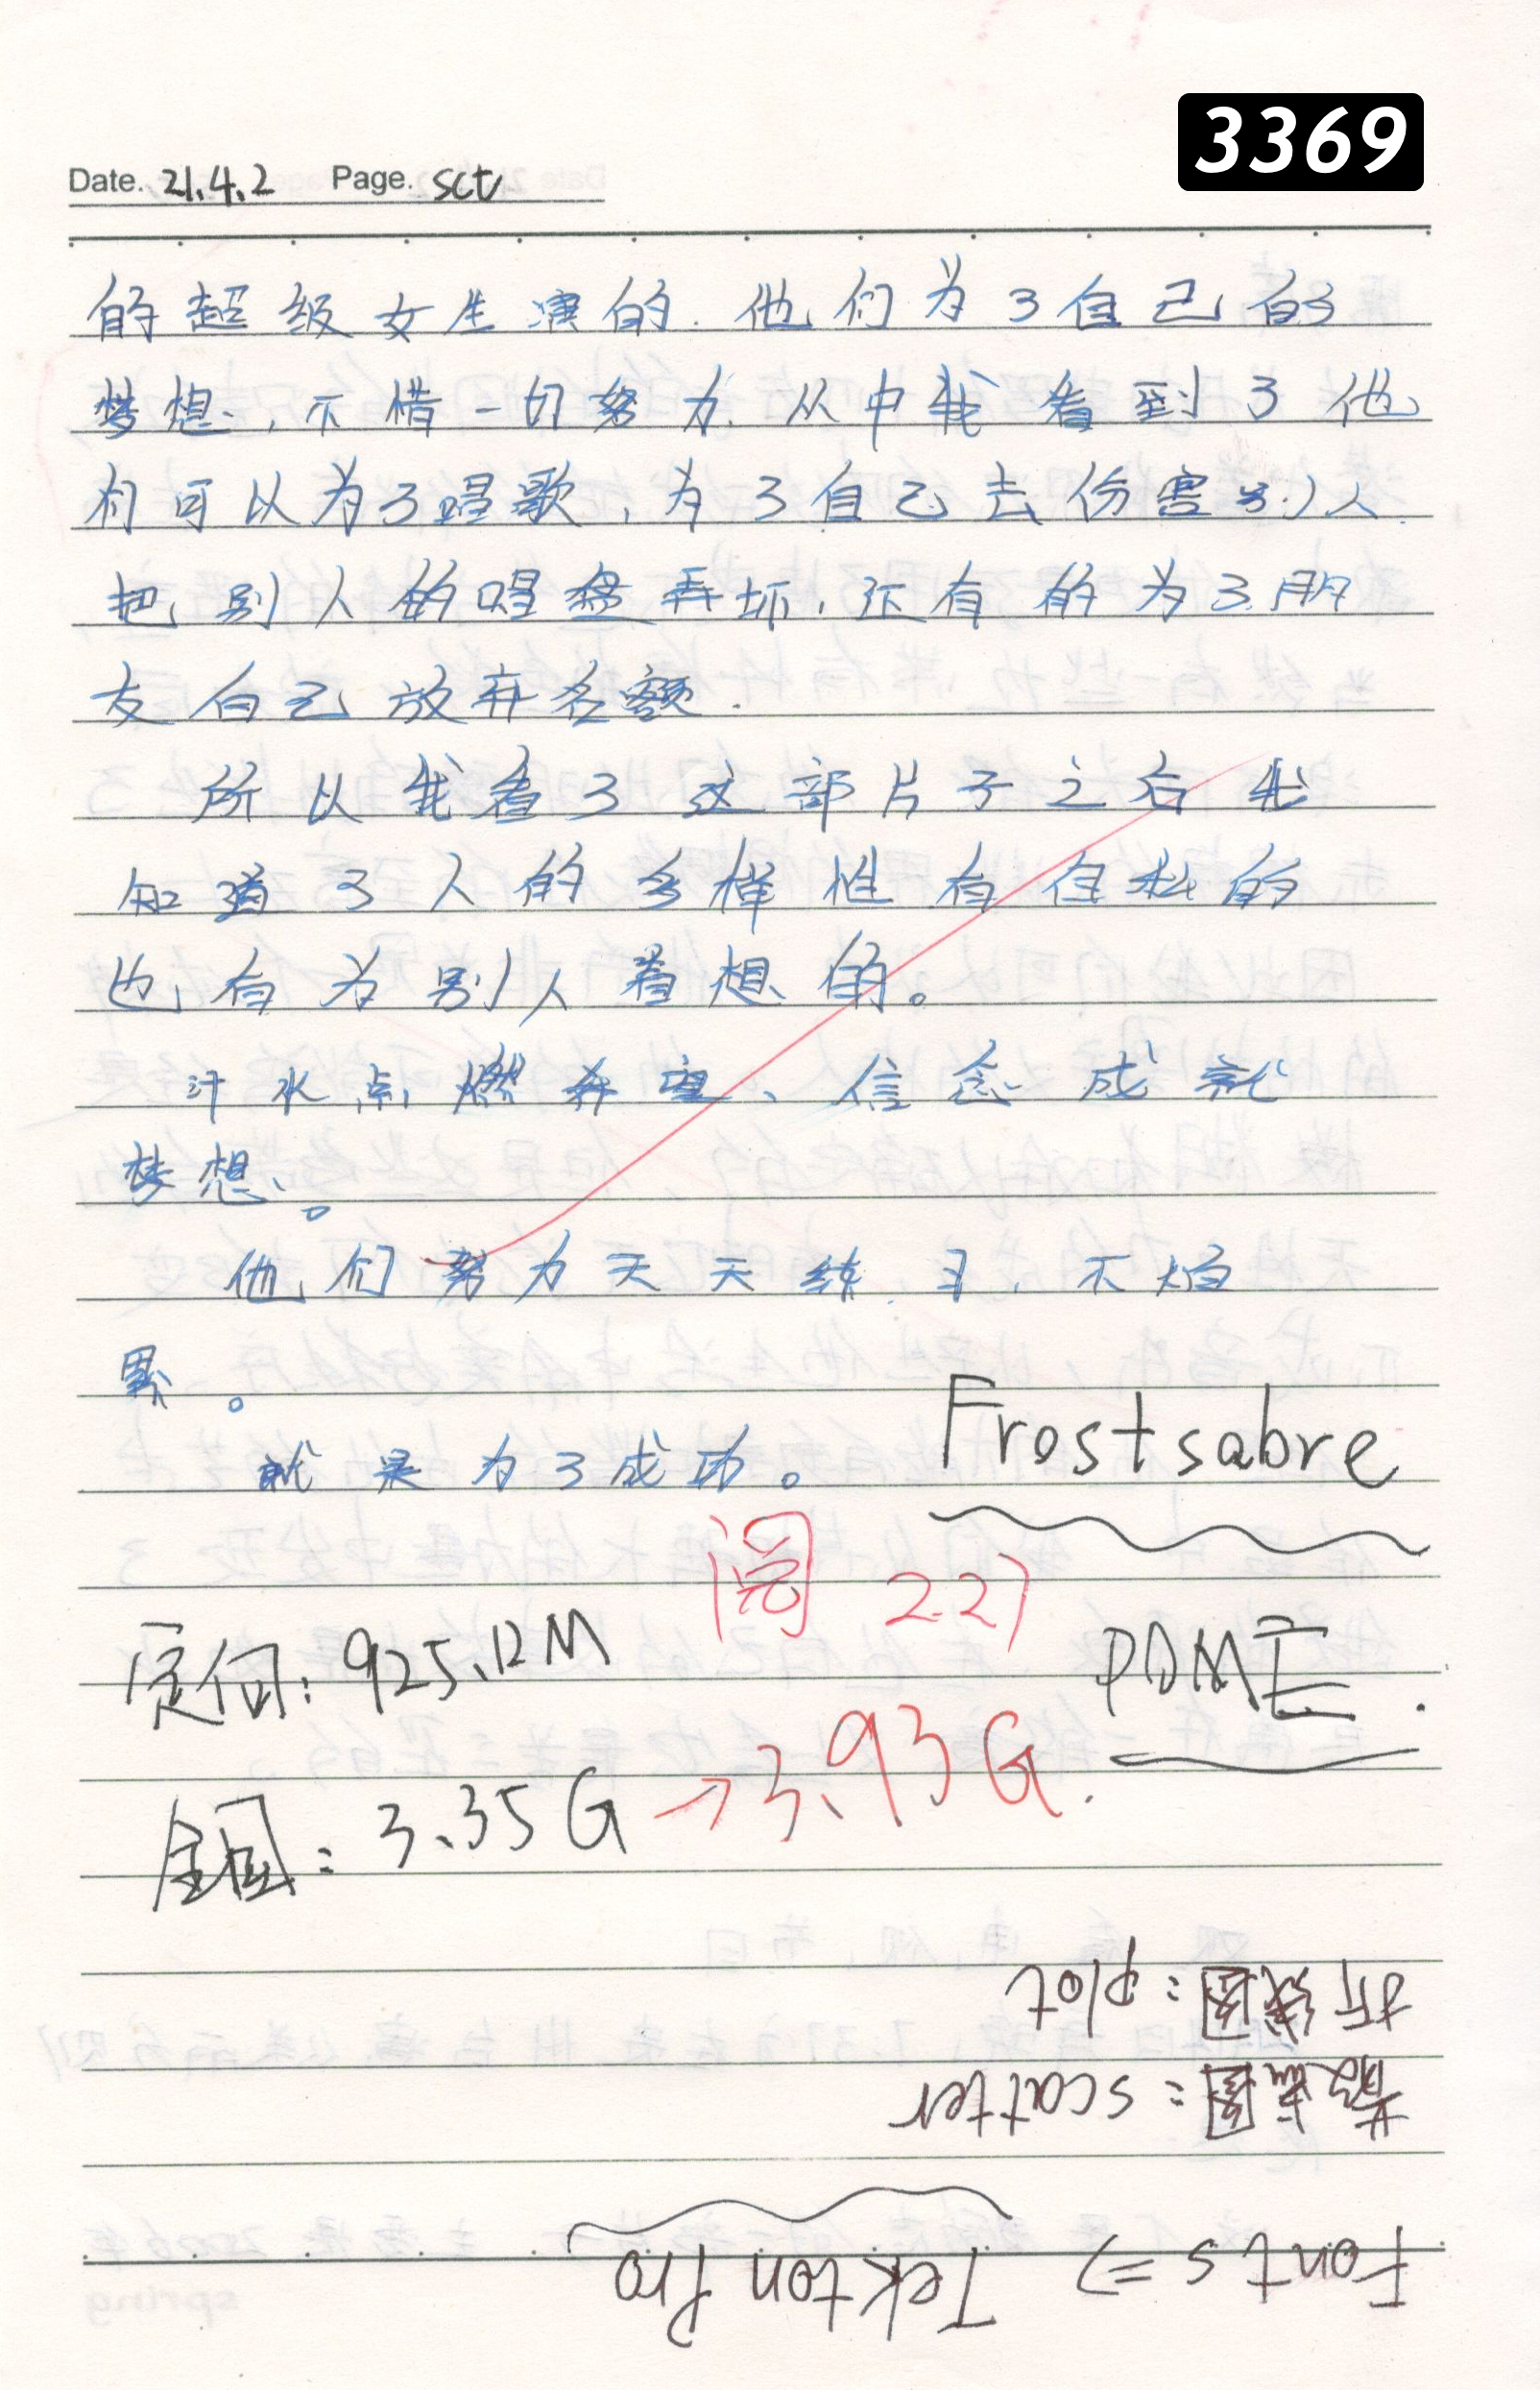 3369
Date. 21.4.2 Page. sct
的超级女生演的.他们为了自己的
梦想,不惜一切努力.从中我看到了他
们可以为了唱歌,为了自己去伤害别人.
把别人的唱盘弄坏,还有的为了朋
友自己放弃名额.
所以我看了这部片子之后我
知道了人的多样性有自私的
也有为别人着想的。
汗水点燃希望、信念成就
梦想。
他们努力天天练习,不怕
累。
就是为了成功。
Frostsabre
阅 2.27
定向:925.12M
PDME.
全国:3.35G→3.93G.
折线图:plot
散点图:scatter
Fonts => Tekton Pro